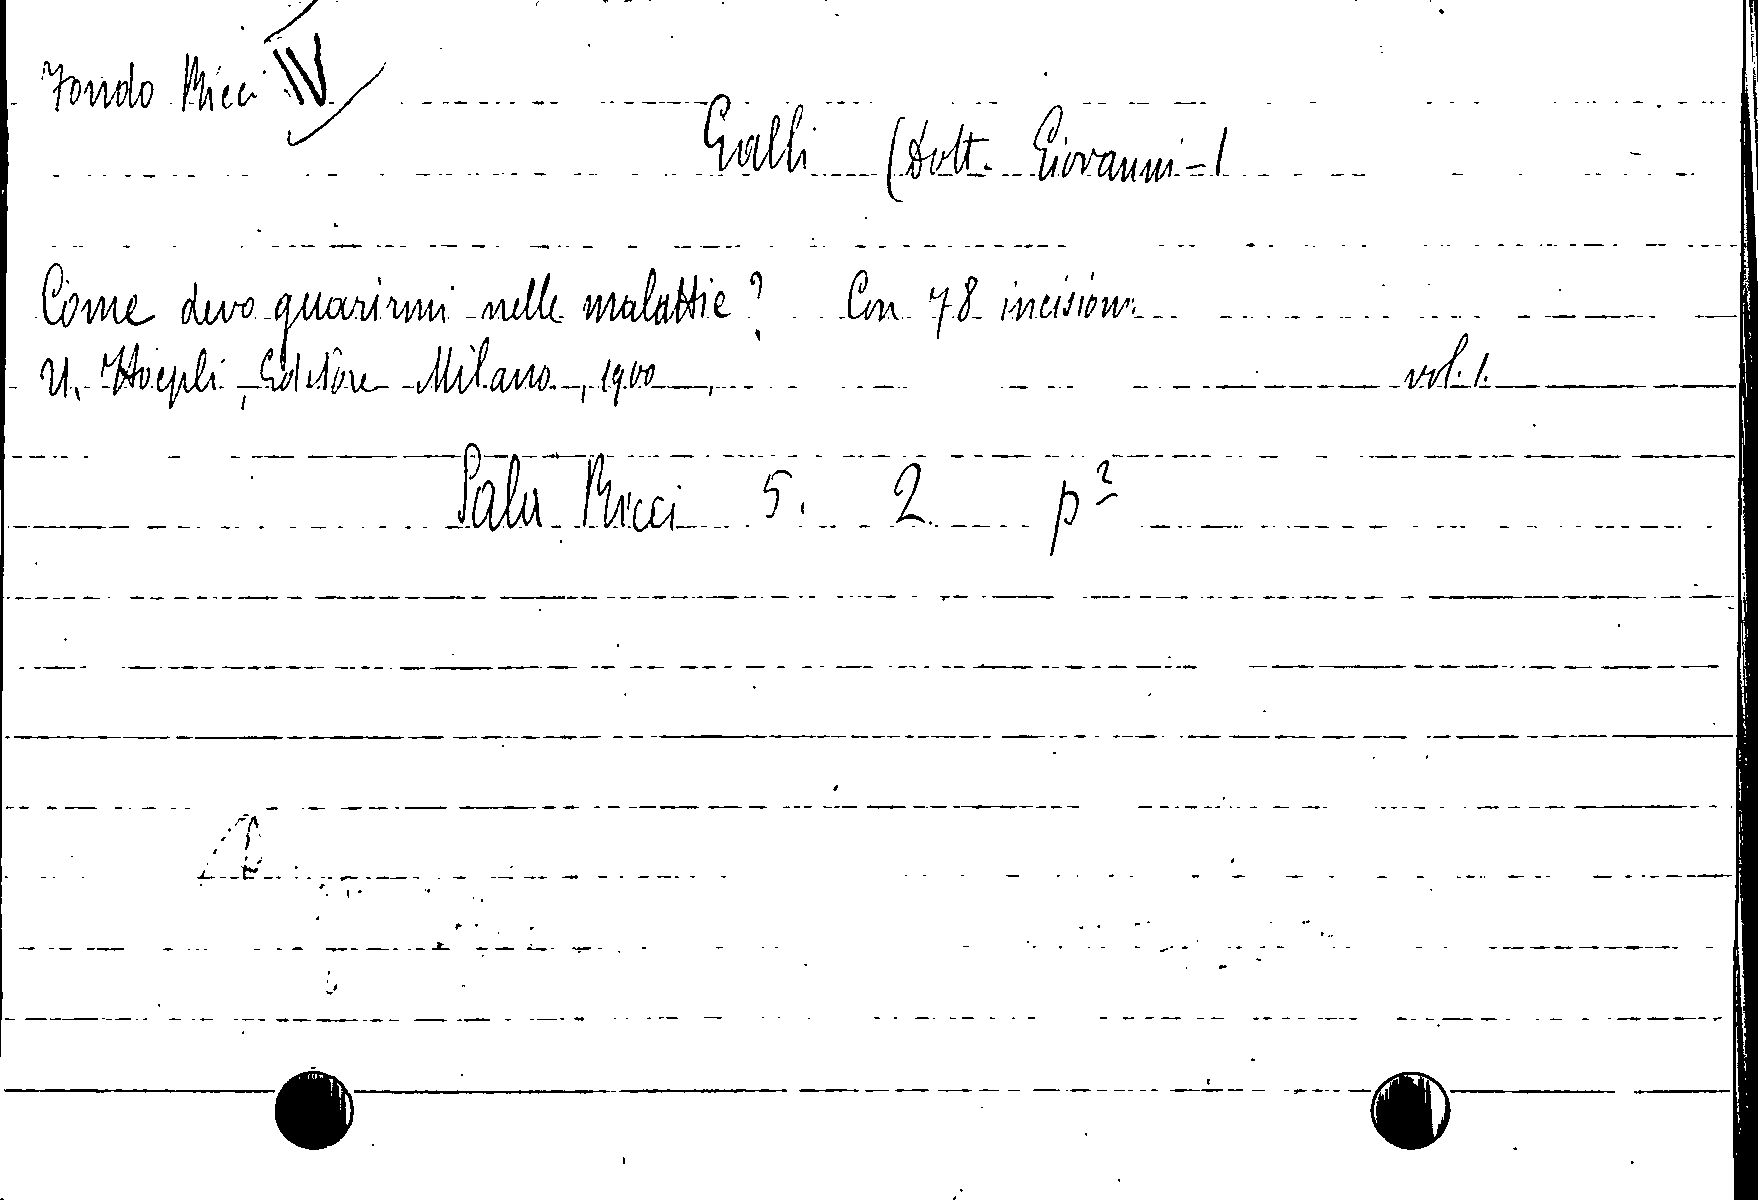 Fondo Ricci IV
Galli (Dott. Giovanni=)
Come devo guarirmi nelle malattie? Con 78 incisioni.
U. Hoepli, Editore Milano, 1900, vol. 1.
Sala Ricci 5. 2 p²